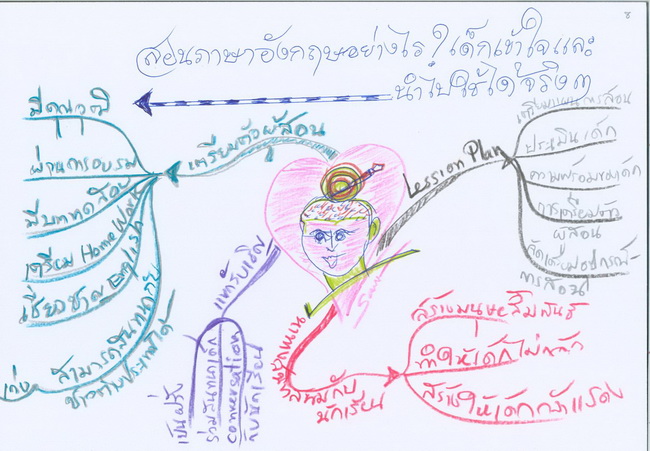 สอนภาษาอังกฤษอย่างไร? เด็กเข้าใจและ
นำไปใช้ได้จริงๆ
เตรียมตัวผู้สอน
มีคุณวุฒิ
ผ่านการอบรม
มีบททดสอบ
เตรียม Home Work
เชี่ยวชาญ English
สามารถสนทนากับ
ชาวต่างประเทศได้
เก่ง
Lession Plan
เตรียมแผนการสอน
ประเมินเด็ก
ความพร้อมของเด็ก
การเตรียมตัว
ผู้สอน
จัดเตรียมอุปกรณ์
การสอน
แขกรับเชิญ
เป็นฝรั่ง
ร่วมสนทนากับเด็ก
conversation
กับนักเรียน
นักเรียน
สร้างมนุษยสัมพันธ์
ทำให้เด็กไม่กลัว
สร้างให้เด็กกล้าแสดง